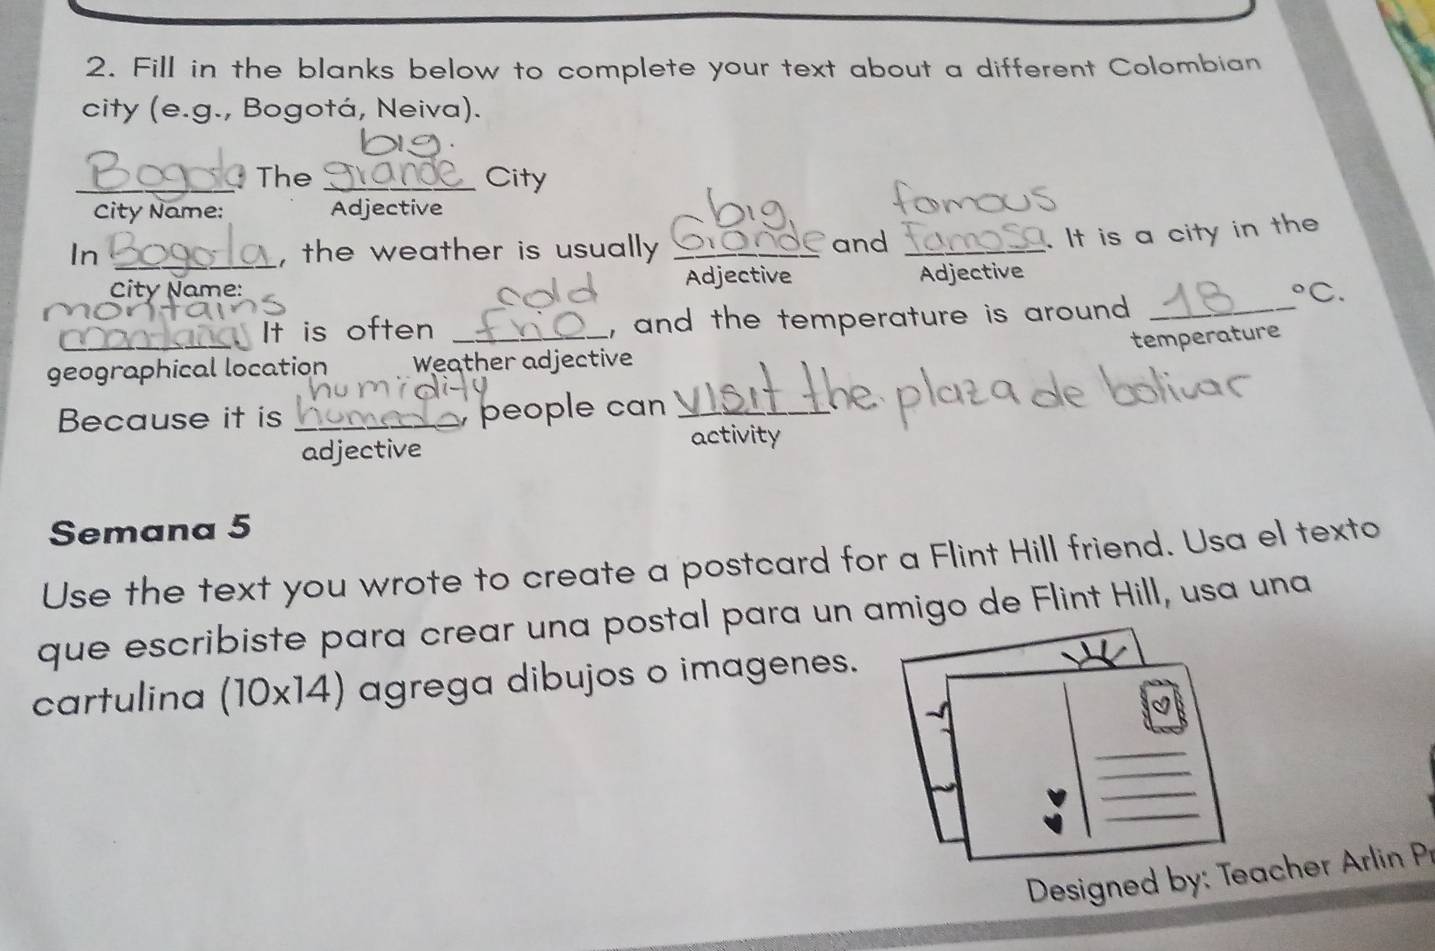 2. Fill in the blanks below to complete your text about a different Colombian
city (e.g., Bogotá, Neiva).
big.
Bogota The grande City
City Name: Adjective
big, famous
In Bogota, the weather is usually Grande and famosa. It is a city in the
City Name: Adjective Adjective
montains cold
montañas It is often frio, and the temperature is around 18 °C.
geographical location Weather adjective temperature
humidity
Because it is humeda, people can visit the plaza de bolivar
adjective activity
Semana 5
Use the text you wrote to create a postcard for a Flint Hill friend. Usa el texto
que escribiste para crear una postal para un amigo de Flint Hill, usa una
cartulina (10x14) agrega dibujos o imagenes.
Designed by: Teacher Arlin